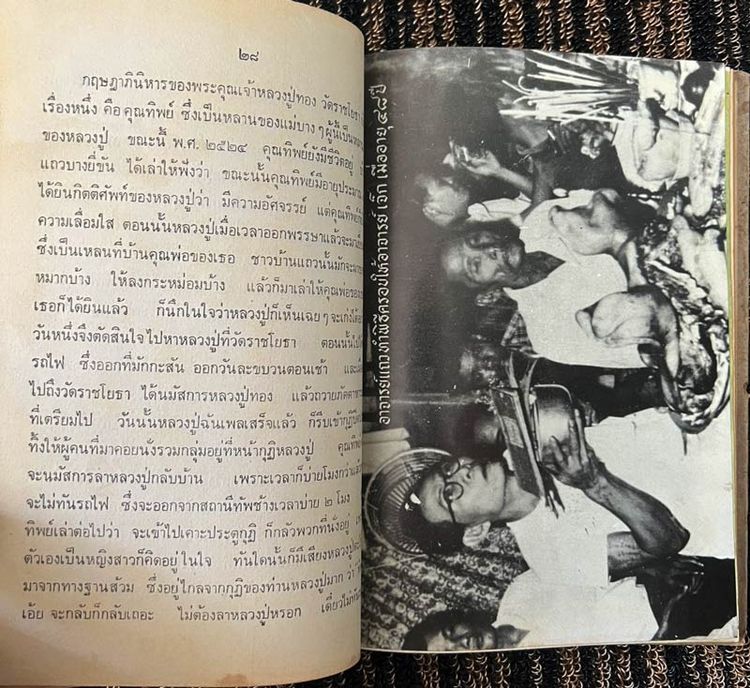 ๒๘
กฤษฎาภินิหารของพระคุณเจ้าหลวงปู่ทอง วัดราชโยธา
เรื่องหนึ่ง คือ คุณทิพย์ ซึ่งเป็นหลานของแม่บาง ๆ ผู้นี้เป็น
ของหลวงปู่ ขณะนี้ พ.ศ. ๒๕๒๔ คุณทิพย์ยังมีชีวิตอยู่
แถวบางยี่ขัน ได้เล่าให้ฟังว่า ขณะนั้นคุณทิพย์มีอายุประมาณ
ได้ยินกิตติศัพท์ของหลวงปู่ว่า มีความอัศจรรย์ แต่คุณทิพย์
ความเลื่อมใส ตอนนั้นหลวงปู่เมื่อเวลาออกพรรษาแล้วจะมา
ซึ่งเป็นเหลนที่บ้านคุณพ่อของเธอ ชาวบ้านแถวนั้นมักจะ
หมากบ้าง ให้ลงกระหม่อมบ้าง แล้วก็มาเล่าให้คุณพ่อของ
เธอก็ได้ยินแล้ว ก็นึกในใจว่าหลวงปู่ก็เห็นเฉย ๆ จะเก่งได้
วันหนึ่งจึงตัดสินใจไปหาหลวงปู่ที่วัดราชโยธา ตอนนั้น
รถไฟ ซึ่งออกที่มักกะสัน ออกวันละขบวนตอนเช้า และ
ไปถึงวัดราชโยธา ได้นมัสการหลวงปู่ทอง แล้วถวายภัตตาหาร
ที่เตรียมไป วันนั้นหลวงปู่ฉันเพลเสร็จแล้ว ก็รีบเข้ากุฏิ
ทิ้งให้ผู้คนที่มาคอยนั่งรวมกลุ่มอยู่ที่หน้ากุฏิหลวงปู่ คุณทิพย์
จะนมัสการลาหลวงปู่กลับบ้าน เพราะเวลาก็บ่ายโมงกว่าแล้ว
จะไม่ทันรถไฟ ซึ่งจะออกจากสถานีทัพช้างเวลาบ่าย ๒ โมง
ทิพย์เล่าต่อไปว่า จะเข้าไปเคาะประตูกุฏิ ก็กลัวพวกที่นั่งอยู่
ตัวเองเป็นหญิงสาวก็คิดอยู่ในใจ ทันใดนั้นก็มีเสียงหลวงปู่
มาจากทางฐานส้วม ซึ่งอยู่ไกลจากกุฏิของท่านหลวงปู่มาก ว่า
เอ้ย จะกลับก็กลับเถอะ ไม่ต้องลาหลวงปู่หรอก เดี๋ยวไม่ทัน
อาจารย์แถวทำพิธีครอบให้อาจารย์ เจ๊ก เมื่ออายุ ๔๘ ปี